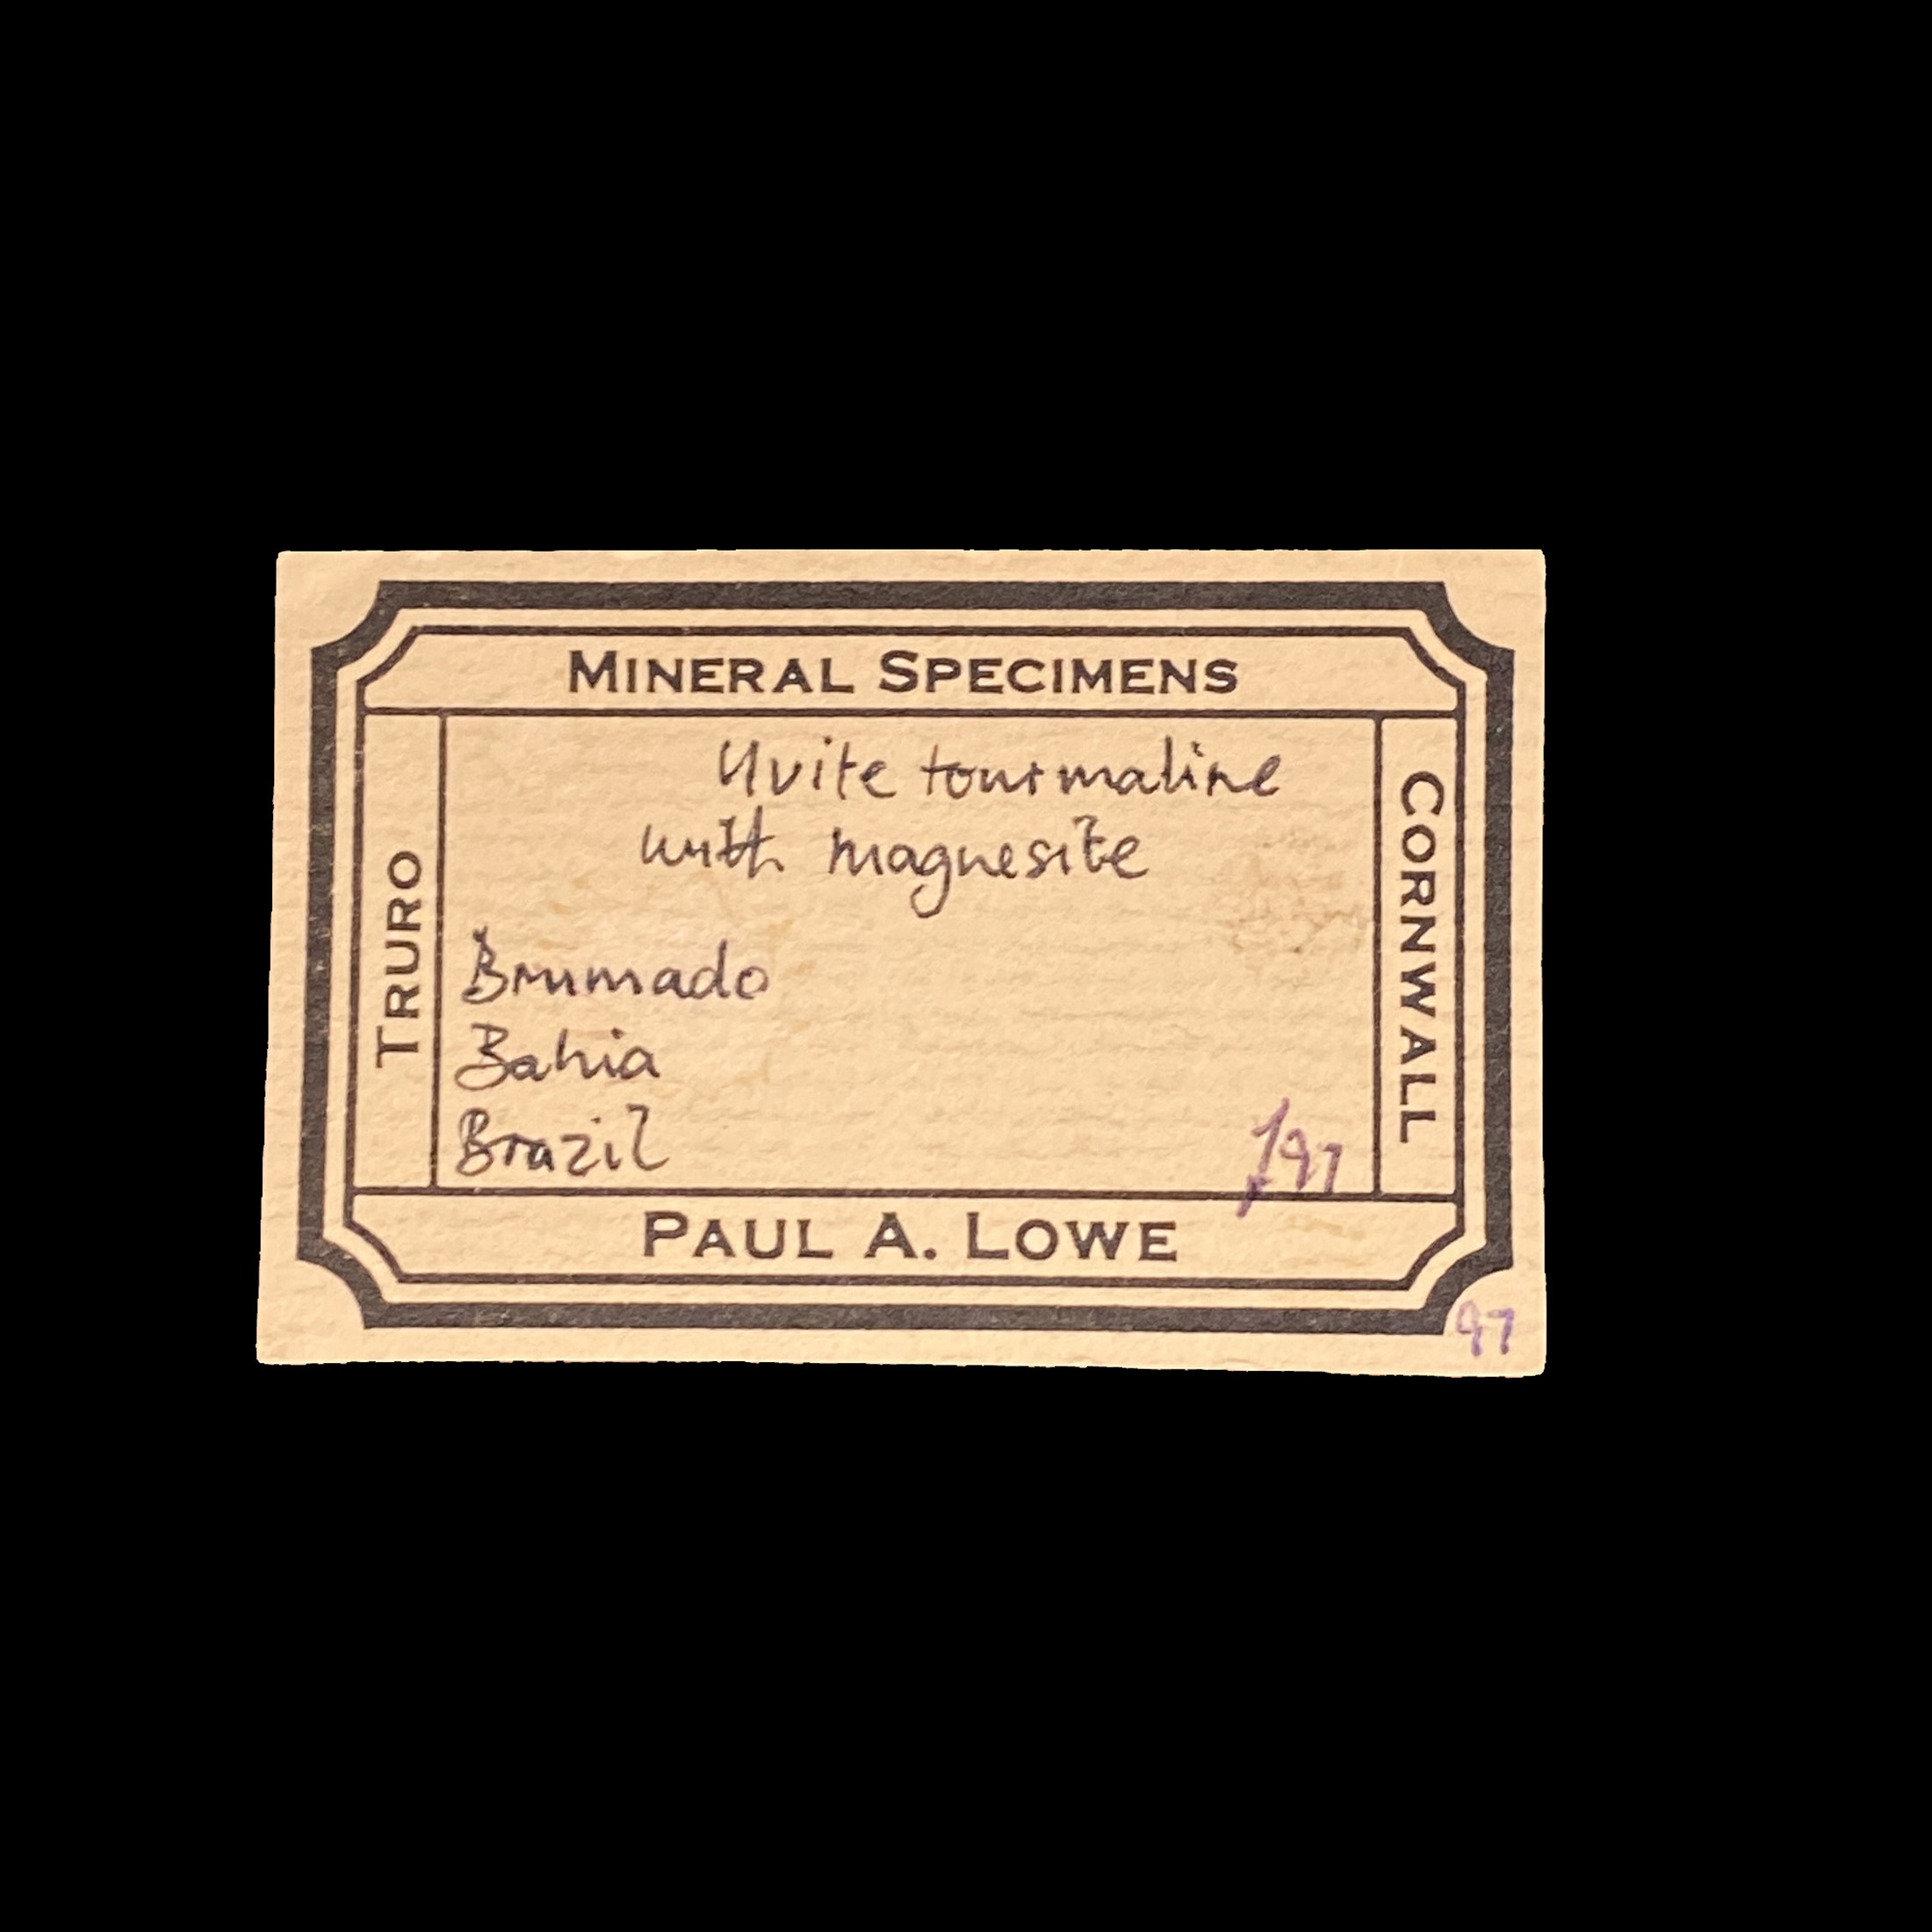 MINERAL SPECIMENS
TRURO
CORNWALL
Uvite tourmaline
with magnesite
Brumado
Bahia
Brazil
PAUL A. LOWE
97